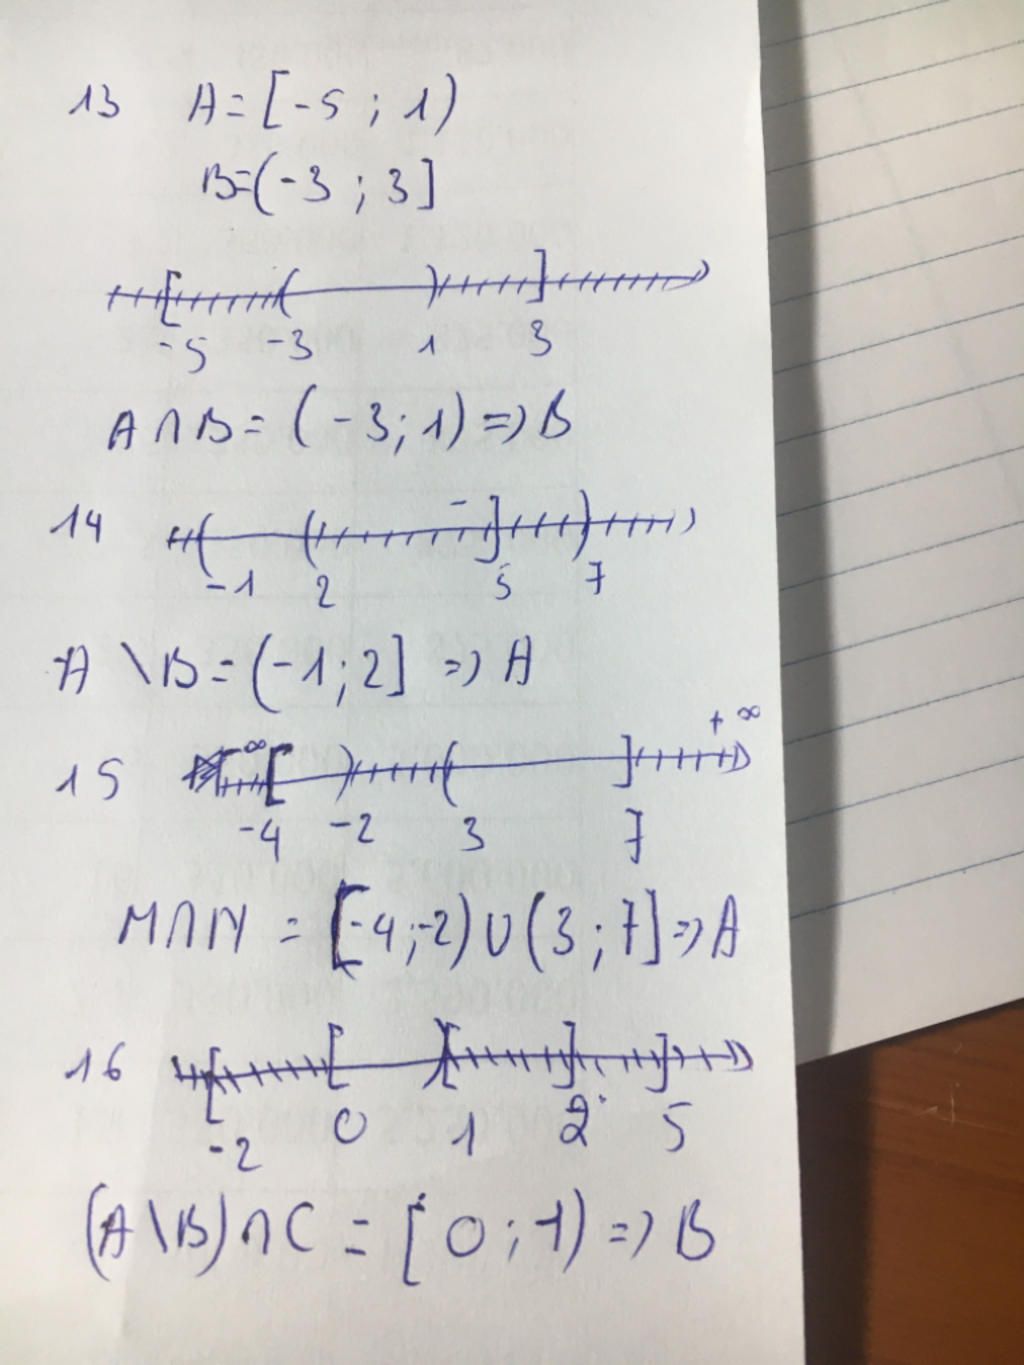 13 A = [-5 ; 1)
B = (-3 ; 3]
-5 -3 1 3
A ∩ B = (-3 ; 1) => B
14
-1 2 5 7
A \ B = (-1 ; 2] => A
15 -∞ +∞
-4 -2 3 7
M ∩ N = [-4 ; -2) ∪ (3 ; 7] => A
16
-2 0 1 2 5
(A \ B) ∩ C = [0 ; 1) => B